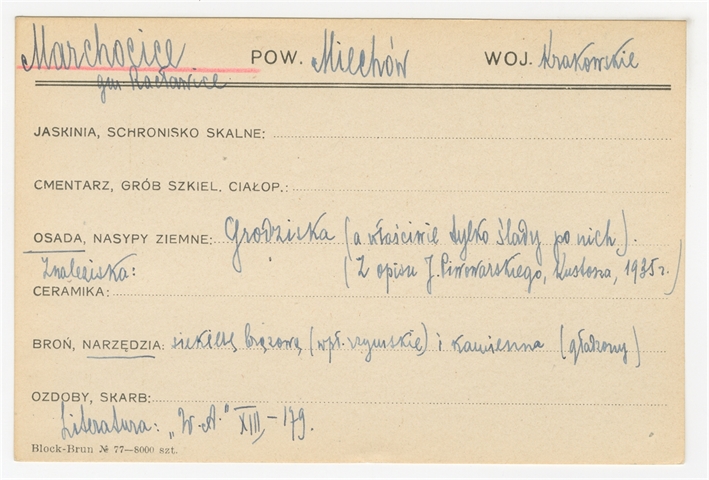 Marchocice POW. Miechów WOJ. Krakowskie
gm Racławice
JASKINIA, SCHRONISKO SKALNE:
CMENTARZ, GRÓB SZKIEL. CIAŁOP.:
OSADA, NASYPY ZIEMNE: Grodziska (a właściwie tylko ślady po nich).
Znaleziska: (Z opisu J. Piwowarskiego, Kustosza, 1935 r.)
CERAMIKA:
BROŃ, NARZĘDZIA: siekierę brązową (wpł. rzymskie) i kamienna (gładzony)
OZDOBY, SKARB:
Literatura: „W.A." XIII, – 179.
Block-Brun № 77—8000 szt.